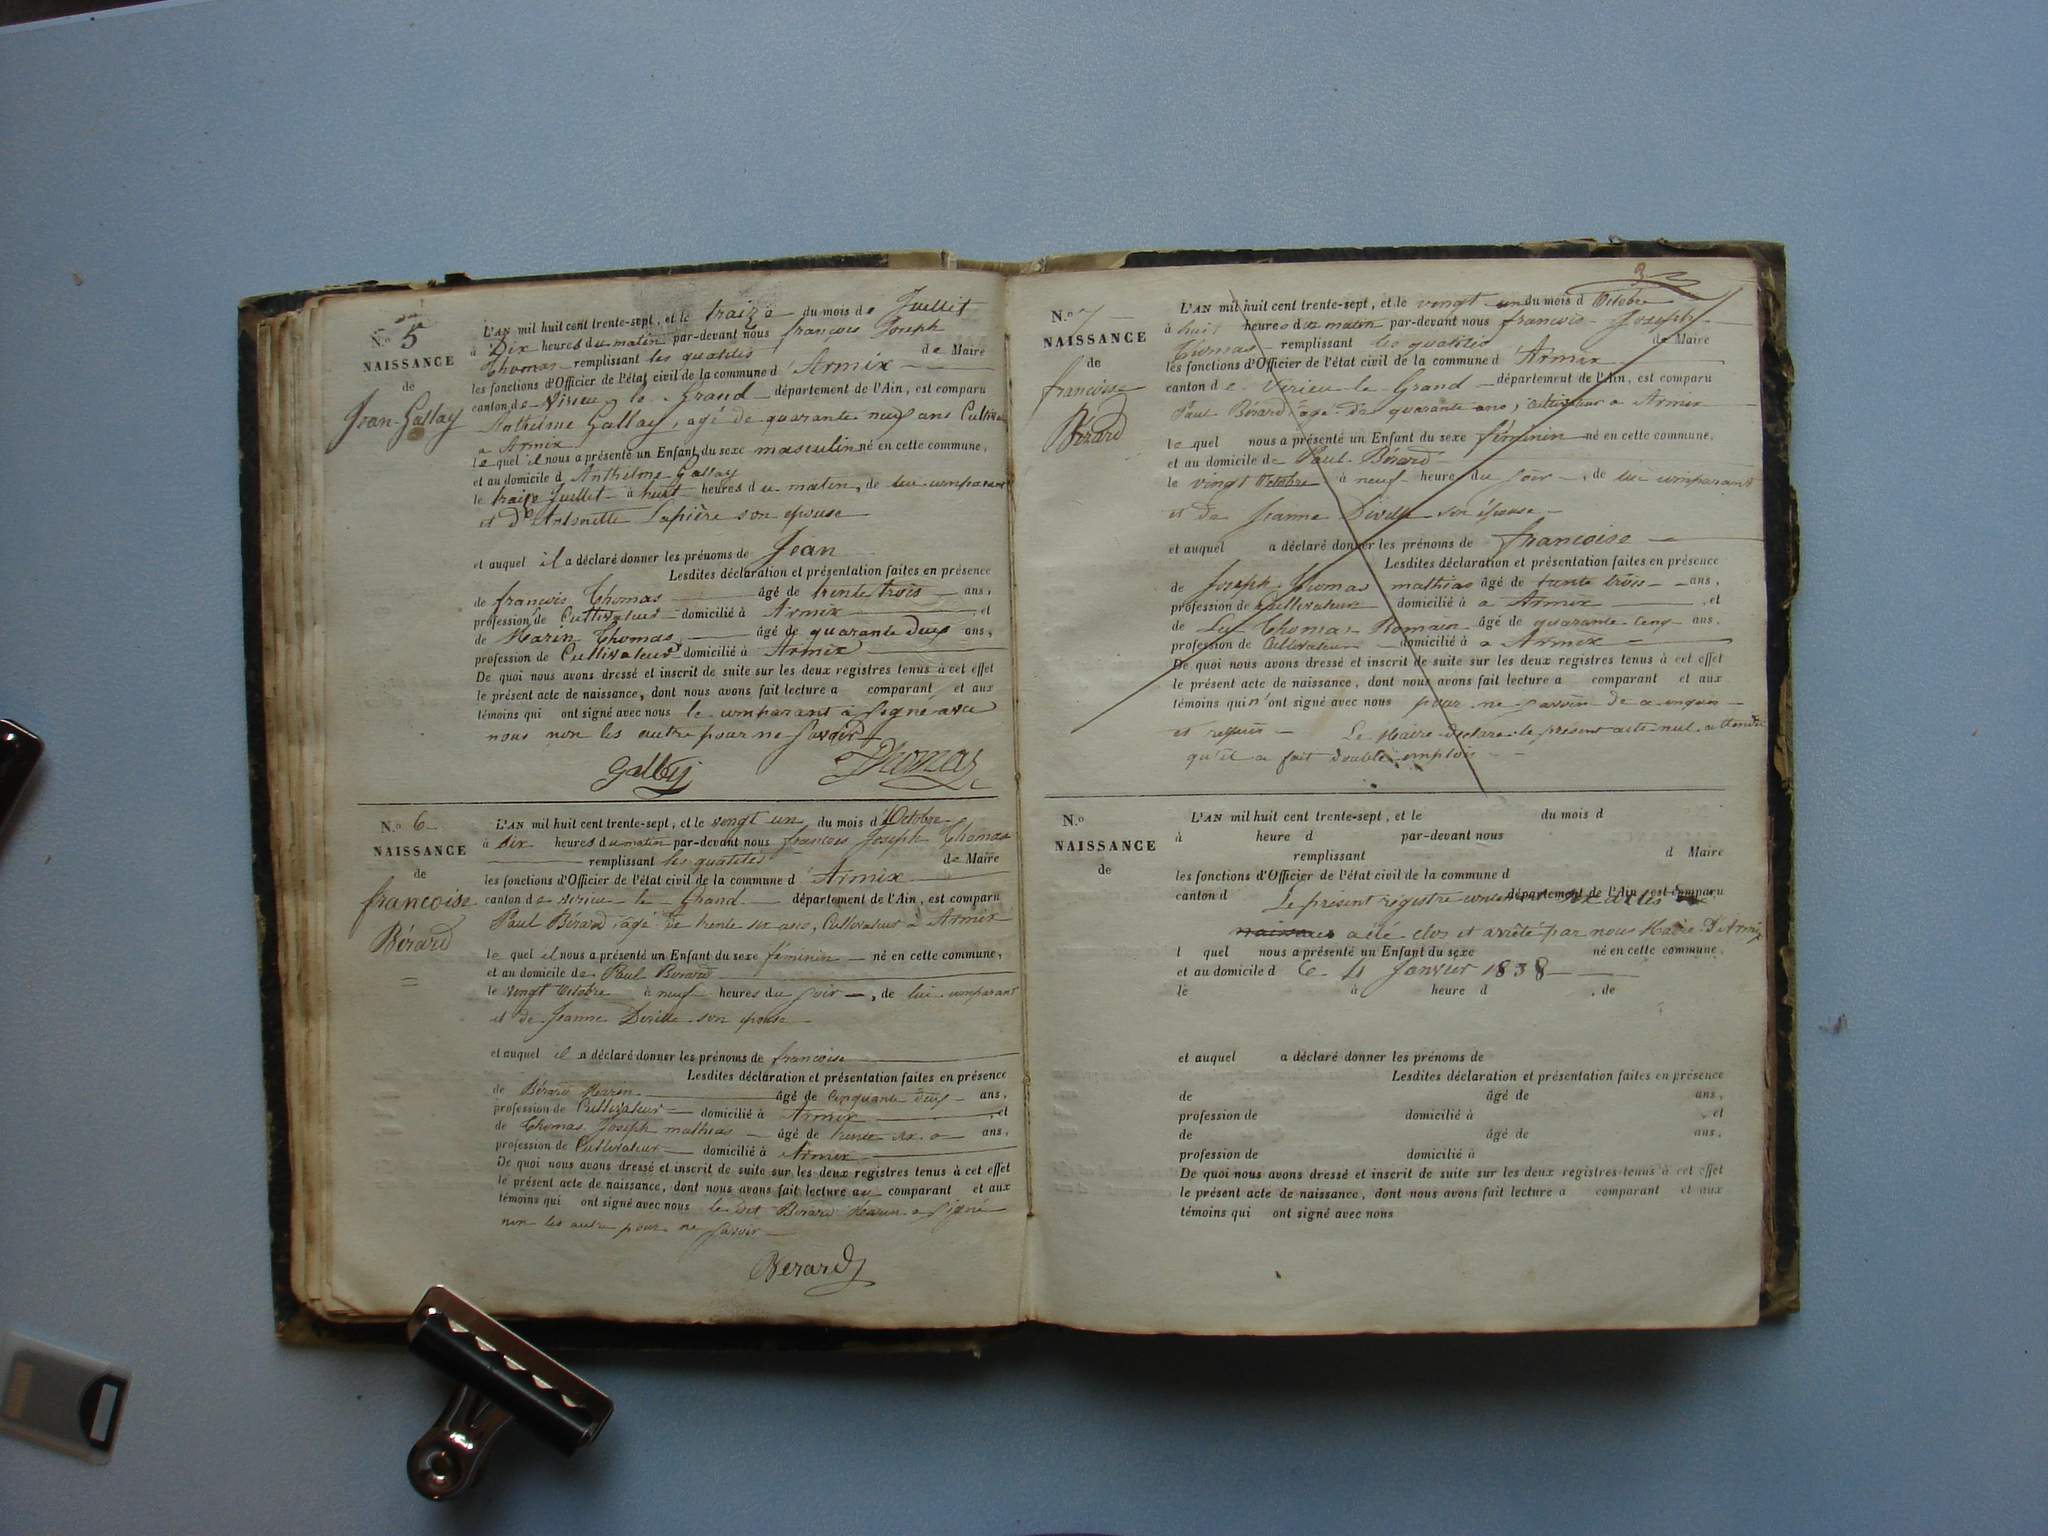 N.º 5
NAISSANCE
de
Jean Gallay
L'AN mil huit cent trente-sept, et le traize du mois de Juillet
à Dix heures du matin par-devant nous françois Joseph
Thomas remplissant les qualités de Maire
les fonctions d'Officier de l'état civil de la commune d'Armix
canton de Virieu le Grand département de l'Ain, est comparu
Anthelme Gallay, agé de quarante neuf ans Cultivateur
a Armix
le quel il nous a présenté un Enfant du sexe masculin né en cette commune,
et au domicile d'Anthelme Gallay
le traize Juillet à huit heures du matin, de lui comparant
et d'Antoinette Lapière son epouse
et auquel il a déclaré donner les prénoms de Jean
Lesdites déclaration et présentation faites en présence
de françois Thomas âgé de trente trois ans,
profession de Cultivateur domicilié à Armix , et
de Marin Thomas, âgé de quarante deux ans,
profession de Cultivateur domicilié à Armix
De quoi nous avons dressé et inscrit de suite sur les deux registres tenus à cet effet
le présent acte de naissance, dont nous avons fait lecture a comparant et aux
témoins qui ont signé avec nous le comparant à signé avec
nous non les autre pour ne savoir
Gallay Thomas
N.º 6
NAISSANCE
de
francoise
Bérard
L'AN mil huit cent trente-sept, et le vengt un du mois d'Octobre
à dix heures du matin par-devant nous francois Joseph Thomas
remplissant les qualités de Maire
les fonctions d'Officier de l'état civil de la commune d'Armix
canton de virieu le Grand département de l'Ain, est comparu
Paul Bérard, âgé de trente six ans, Cultivateur a Armix
le quel il nous a présenté un Enfant du sexe féminin né en cette commune,
et au domicile de Paul Berard
le vengt Octobre à neuf heures du soir , de lui comparant
et de Jeanne Deville son epouse
et auquel il a déclaré donner les prénoms de francoise
Lesdites déclaration et présentation faites en présence
de Bérard Marin âgé de cinquante deux ans,
profession de Cultivateur domicilié à Armix , et
de Thomas Joseph mathias âgé de trente six ans,
profession de Cultivateur domicilié à Armix
De quoi nous avons dressé et inscrit de suite sur les deux registres tenus à cet effet
le présent acte de naissance, dont nous avons fait lecture au comparant et aux
témoins qui ont signé avec nous le dit Bérard Marin a signé
non les autre pour ne savoir
Berard
3
N.º 7
NAISSANCE
de
francoise
Bérard
L'AN mil huit cent trente-sept, et le vengt un du mois d'Octobre
à huit heures du matin par-devant nous francois Joseph
Thomas remplissant les qualités de Maire
les fonctions d'Officier de l'état civil de la commune d'Armix
canton de Virieu le Grand département de l'Ain, est comparu
Paul Bérard, âgé de quarante ans, cultivateur a Armix
le quel nous a présenté un Enfant du sexe féminin né en cette commune,
et au domicile de Paul Bérard
le vingt Octobre à neuf heure du soir , de lui comparant
et de Jeanne Deville son épouse
et auquel a déclaré donner les prénoms de francoise
Lesdites déclaration et présentation faites en présence
de Joseph Thomas mathias âgé de trente trois ans,
profession de Cultivateur domicilié à a Armix , et
de Thomas Romain âgé de quarante cinq ans,
profession de Cultivateur domicilié à a Armix
De quoi nous avons dressé et inscrit de suite sur les deux registres tenus à cet effet
le présent acte de naissance, dont nous avons fait lecture a comparant et aux
témoins qui n'ont signé avec nous pour ne savoir de ce
et requis Le Maire déclare le présent acte nul attendu
qu'il a fait double emplois
N.º
NAISSANCE
de
L'AN mil huit cent trente-sept, et le du mois d
à heure d par-devant nous
remplissant d Maire
les fonctions d'Officier de l'état civil de la commune d
canton d département de l'Ain, est comparu
Le présent régistre actes
naissances a été clos et arrêté par nous Maire D'Armix
l quel nous a présenté un Enfant du sexe né en cette commune,
et au domicile d Ce Janvier 1838
le à heure d , de
et auquel a déclaré donner les prénoms de
Lesdites déclaration et présentation faites en présence
de âgé de ans,
profession de domicilié à , et
de âgé de ans,
profession de domicilié à
De quoi nous avons dressé et inscrit de suite sur les deux registres tenus à cet effet
le présent acte de naissance, dont nous avons fait lecture a comparant et aux
témoins qui ont signé avec nous